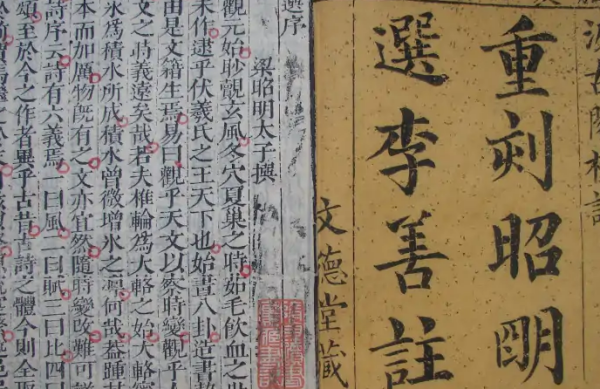 汲古閣校訂
重刻昭明
選李善註
文德堂藏
選序
梁昭明太子撰
觀元始眇覿玄風冬穴夏巢之時茹毛飲血之世
未作逮乎伏羲氏之王天下也始畫八卦造書
由是文籍生焉易曰觀乎天文以察時變觀乎
文之時義遠矣哉若夫椎輪爲大輅之始大輅
冰爲積水所成積水曾微增冰之凜何哉蓋踵其
本而加厲物既有之文亦宜然隨時變改難可詳
詩序云詩有六義焉一曰風二曰賦三曰比四曰
頌至於今之作者異乎古昔古詩之體今則全取